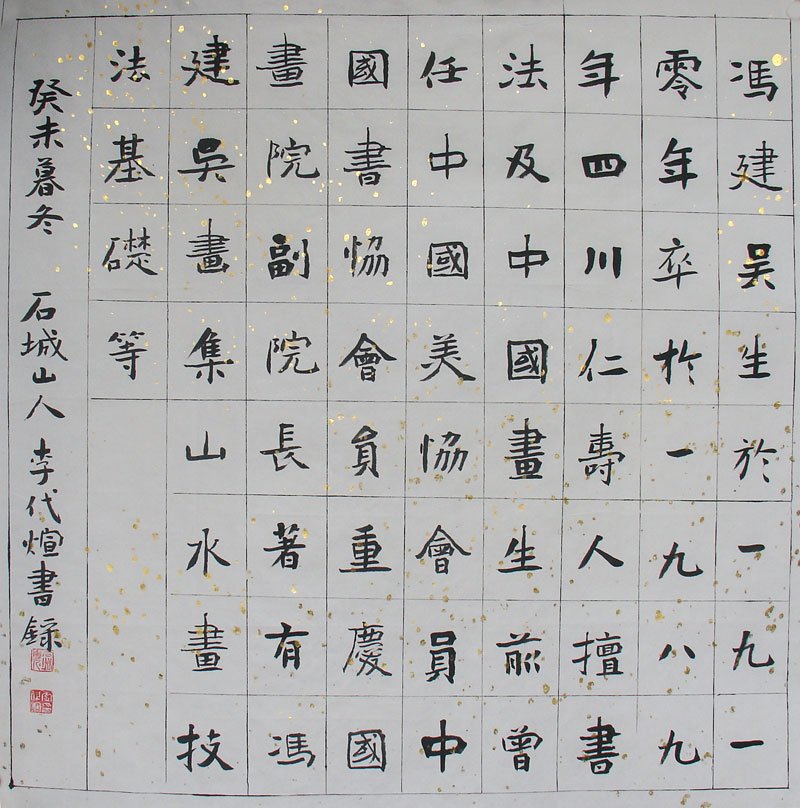 馮建吴生於一九一
零年卒於一九八九
年四川仁壽人擅書
法及中國畫生前曾
任中國美協會員中
國書協會員重慶國
畫院副院長著有馮
建吳畫集山水畫技
法基礎等
癸未暮冬 石城山人 李代煊書錄